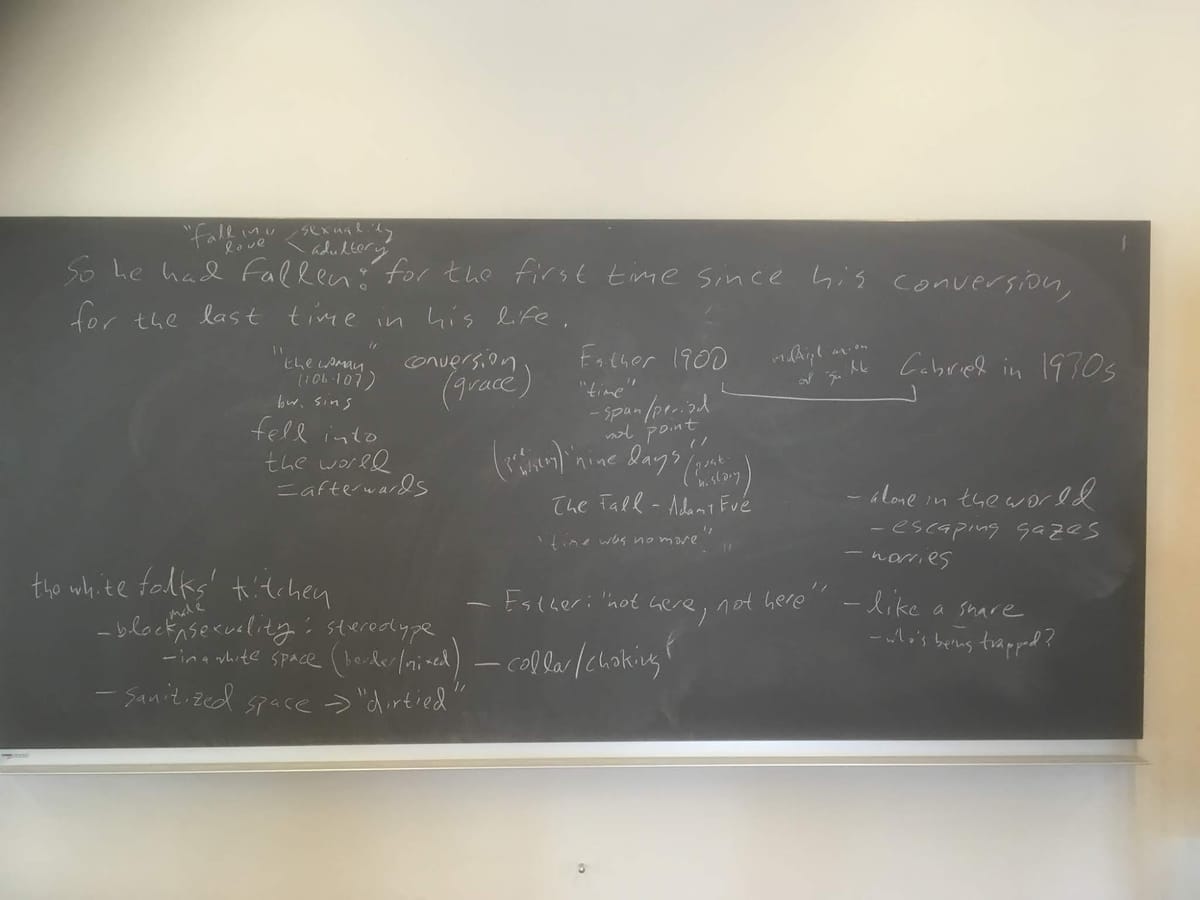 "fall in
love"
sexuality
adultery
So he had fallen: for the first time since his conversion,
for the last time in his life.
"the woman"
(106-107)
bw. sins
fell into
the world
=afterwards
conversion
(grace)
Esther 1900
"time"
- span/period
not point
Gabriel in 1930s
"nine days"
history)
history)
The Fall - Adam + Eve
"time was no more."
- alone in the world
- escaping gazes
- worries
- like a snare
- who's being trapped?
the white folks' kitchen
- black male sexuality: stereotype
- in a white space (border/mixed)
- sanitized space → "dirtied"
- Esther: "not here, not here"
- collar/choking